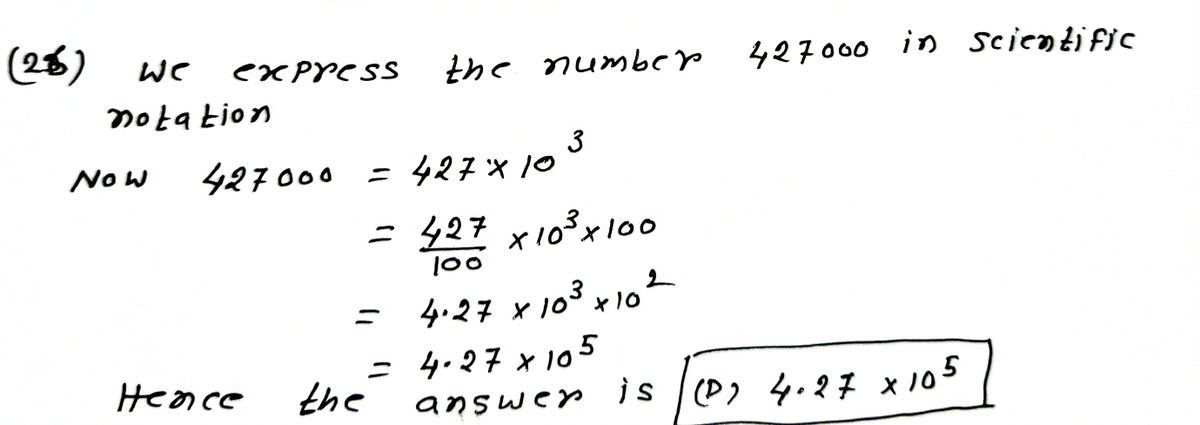 (26) We express the number 427000 in scientific
notation
Now 427000 = 427 × 10³
= 427/100 × 10³ × 100
= 4.27 × 10³ × 10²
= 4.27 × 10⁵
Hence the answer is (D) 4.27 × 10⁵